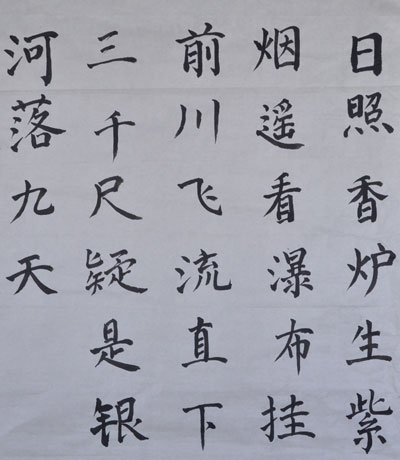 日照香炉生紫
烟遥看瀑布挂
前川飞流直下
三千尺疑是银
河落九天